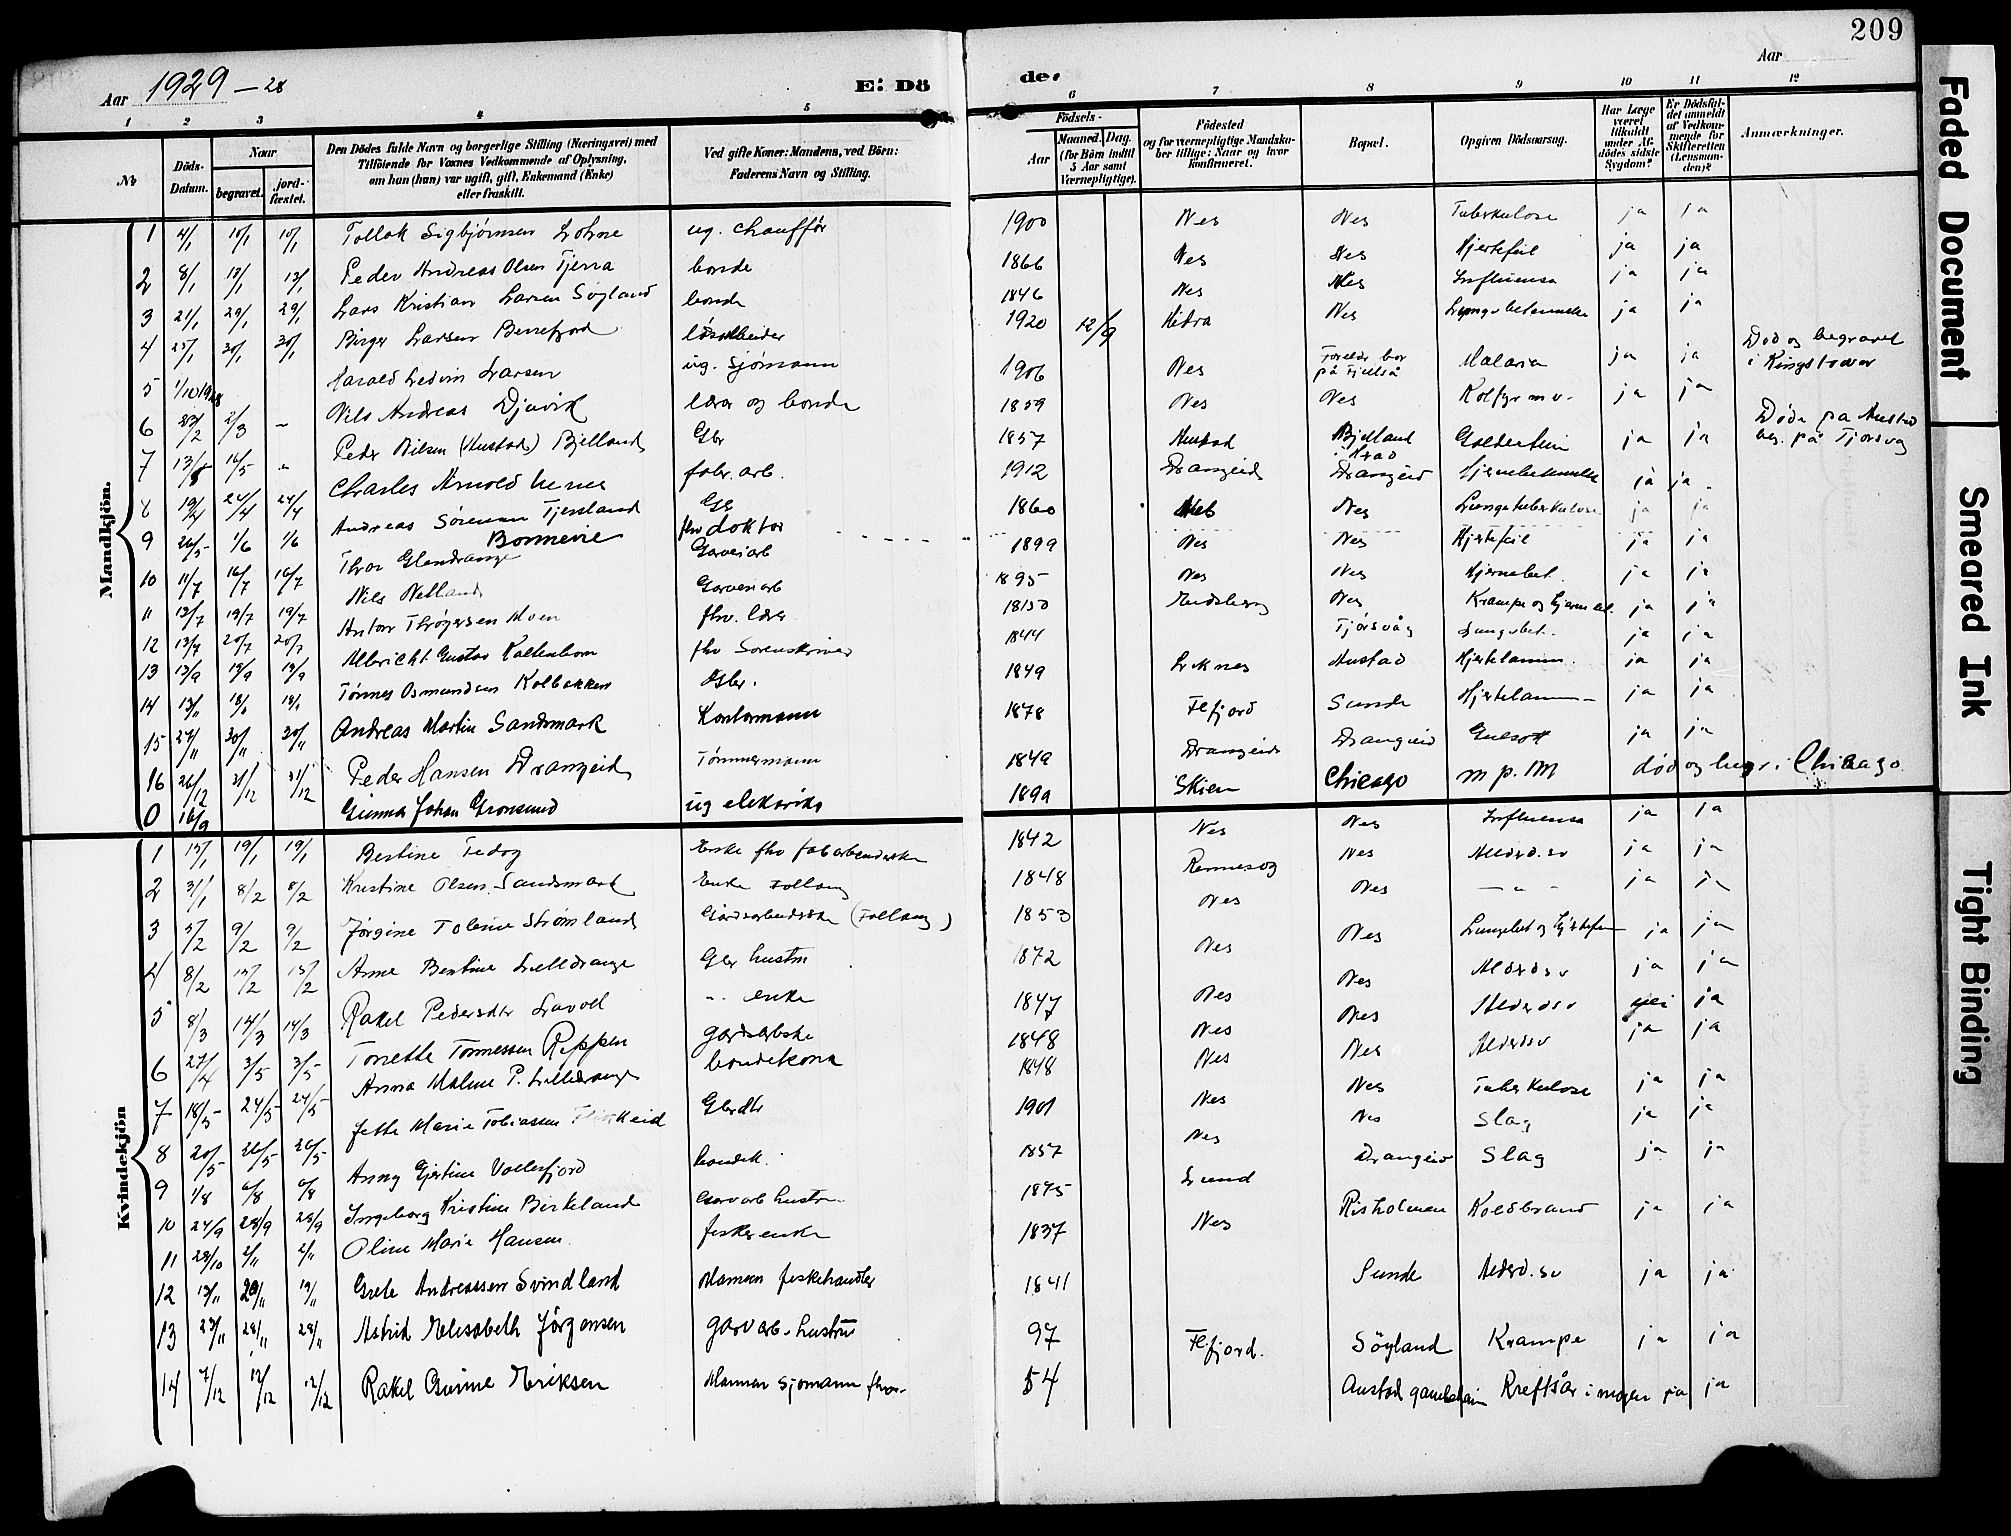 209
Aar 1929 - 28
E: Dö de.
Aar
1 2 3 4 5 6 7 8 9 10 11 12
No
Döds-Datum.
Naar
begravet.
jord-fæstet.
Den Dödes fulde Navn og borgerlige Stilling (Næringsvei) med
Tilföiende for Voxnes Vedkommende af Oplysning,
om han (hun) var ugift, gift, Enkemand (Enke)
eller fraskilt.
Ved gifte Koner: Mandens, ved Börn:
Faderens Navn og Stilling.
Födsels-
Aar
Maaned. Dag.
(for Börn indtil
5 Aar samt
Værnepligtige).
Födested
og for værnepligtige Mandska-
ber tillige: Naar og hvor
konfirmeret.
Bopæl.
Opgiven Dödsaarsag.
Har Læge
været
tilkaldt
under Af-
dödes sidste
Sygdom?
Er Dödsfal-
det anmeldt
af Vedkom-
mende for
Skifteretten
(Lensman-
den)?
Anmærkninger.
Mandkjön.
1 4/1 10/1 10/1 Tollak Sigbjørnsen Lohne ug. chauffør 1900 Nes Nes Tuberkulose ja ja
2 8/1 13/1 13/1 Peder Andreas Olsen Tjerra bonde 1866 Nes Nes Hjertefeil ja ja
3 21/1 29/1 29/1 Lars Kristian Larsen Søyland bonde 1846 Nes Nes Influensa ja ja
4 25/1 30/1 30/1 Birger Larsen Berrefjord løsarbeider 1920 12/9 Hidra Nes Lungebetennelse ja ja
5 1/10 1928 Harald Ledvin Larsen ug. Sjømann 1906 Nes Foreldr. bor på Fjellså Malaria ja ja Død og begravet i Kingstown
6 23/2 2/3 - Nils Andreas Djuvik lærer og bonde 1859 Nes Nes ja ja
7 13/5 16/5 - Peder Nilsen (Austad) Bjelland Gbr 1857 Austad Bjelland ja ja Døde på Austad beg. på Tjørsvåg
8 19/4 24/4 24/4 Charles Arnold fabr. arb. 1912 Drangeid Drangeid Hjernebetennelse ja ja
9 26/5 1/6 1/6 Andreas Sørensen Tjersland Gbr 1860 Nes Nes Lungetuberkulose ja ja
Bonnevie fhv doktor
10 11/7 16/7 16/7 Thor Glendrange Garveriarb 1899 Nes Nes Hjertefeil ja ja
11 13/7 19/7 19/7 Nils Netland Garveriarb 1895 Nes Nes Hjernebet. ja ja
12 13/7 20/7 20/7 Anton Thrøgersen Moen fhv. lærer 1850 Nes ja ja
13 13/9 19/9 19/9 Albricht Gustav Kaltenborn fhv Sorenskriver 1844 Tjørsvåg Lungebet. ja ja
14 13/11 18/11 18/11 Tønnes Osmundsen Kolbakken Gbr. 1849 Liknes Austad Hjertelamm. ja ja
15 24/11 30/11 30/11 Andreas Martin Sandsmark Kontormann 1878 Flfjord Sunde Hjertelam- ja ja
16 26/12 31/12 31/12 Peder Hansen Drangeid Tømmermann 1849 Drangeid Drangeid Gulsott ja ja
0 16/9 Gunnar Johan Gronsund ug elektrike 1899 Skien Chicago m p. M død og begr. i Chicago
Kvindekjön
1 15/1 19/1 19/1 Bertine Tedog Enke fhv 1842 Nes Nes Influensa ja ja
2 31/1 8/2 8/2 Kristine Olsen Sandsmark Enke Follaug 1848 Nes Alderd.sv ja ja
3 5/2 9/2 9/2 Jørgine Toline Strømland Gårdsarbeiderske 1853 Nes Nes - " - ja ja
4 8/2 15/2 15/2 Anne Bertine Lilledrange Gbr hustru 1872 Nes Nes Lungebet og Hjertefeil ja ja
5 8/3 14/3 14/3 Rakel Pedersdtr Lavoll " enke 1847 Nes Nes Alderdsv ja ja
6 27/4 3/5 3/5 Tonette Tønnessen Reppen gardarbske 1848 Nes Nes Alderdsv nei ja
7 18/5 24/5 24/5 Anna Malene P. Lilledrange bondekona 1848 Nes Nes Alderdsv ja ja
8 20/5 26/5 26/5 Jette Marie Tobiassen Gbrdtr 1901 Nes Nes Tuberkulose ja ja
9 1/8 6/8 6/8 Anny Gjertine Vollesfjord bondek. 1857 Nes Nes Slag ja ja
10 24/9 28/9 28/9 Ingeborg Kristine Birkeland Garvarb hustru 1875 Lund Drangeid Slag ja ja
11 28/10 2/11 2/11 Oline Marie Hansen fiskerenke 1837 Nes Risholmen Koldbrand ja ja
12 13/11 20/11 19/11 Grete Andreassen Svindland Mannen fiskehandler 1841 Sunde Alderd.sv ja ja
13 23/11 28/11 28/11 Astrid Elisabeth Jörgensen garvarb. hustru 97 Flfjord. Söyland Krampe ja ja
14 7/12 12/12 12/12 Rakel Gurine Eriksen Mannen sjømann fhv. 54 Austad gamleheim Kreftsår i magen ja ja
Faded Document
Smeared Ink
Tight Binding